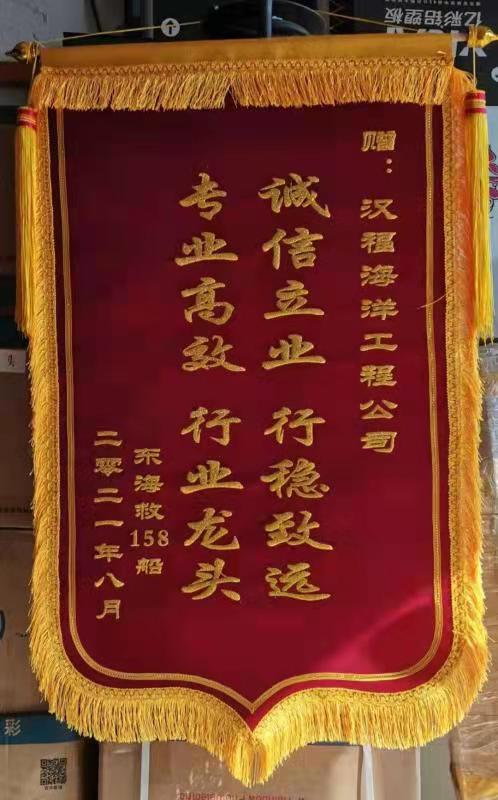 赠：汉福海洋工程公司
诚信立业 行稳致远
专业高效 行业龙头
东海救158船
二零二一年八月
亿彩铝塑板
彩
头